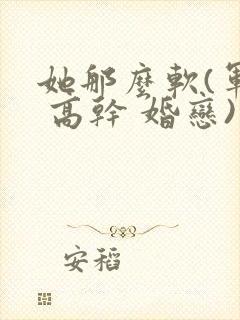 她那麼軟(軍
高幹 婚戀)
安稻